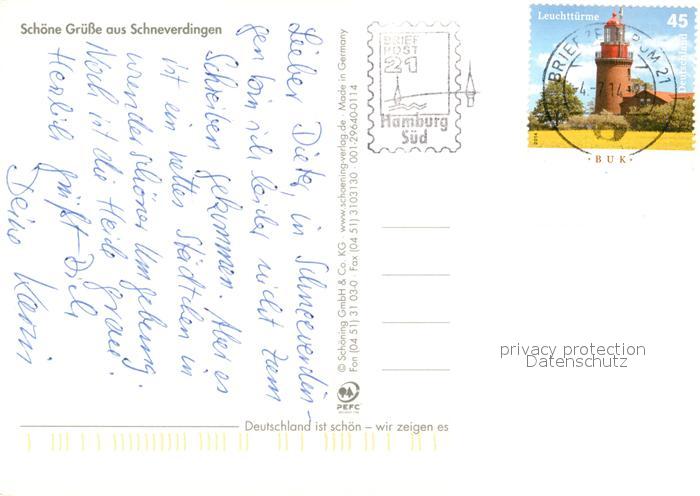 Schöne Grüße aus Schneverdingen
Lieber Dieter, in Schneverdin-
gen bin ich leider nicht zum
Schreiben gekommen. Aber es
ist ein nettes Städtchen in
wunderschöner Umgebung.
Noch ist die Heide grau!
Herzlich grüßt Dich
Deine Karin
© Schöning GmbH & Co. KG · www.schoening-verlag.de · Made in Germany
Fon (04 51) 31 03-0 · Fax (04 51) 3103130 · 001-29640-0114
PEFC
Deutschland ist schön – wir zeigen es
BRIEF
POST
21
Hamburg
Süd
Leuchttürme
45
Deutschland
2014
BUK
BRIEFZENTRUM 21
privacy protection
Datenschutz